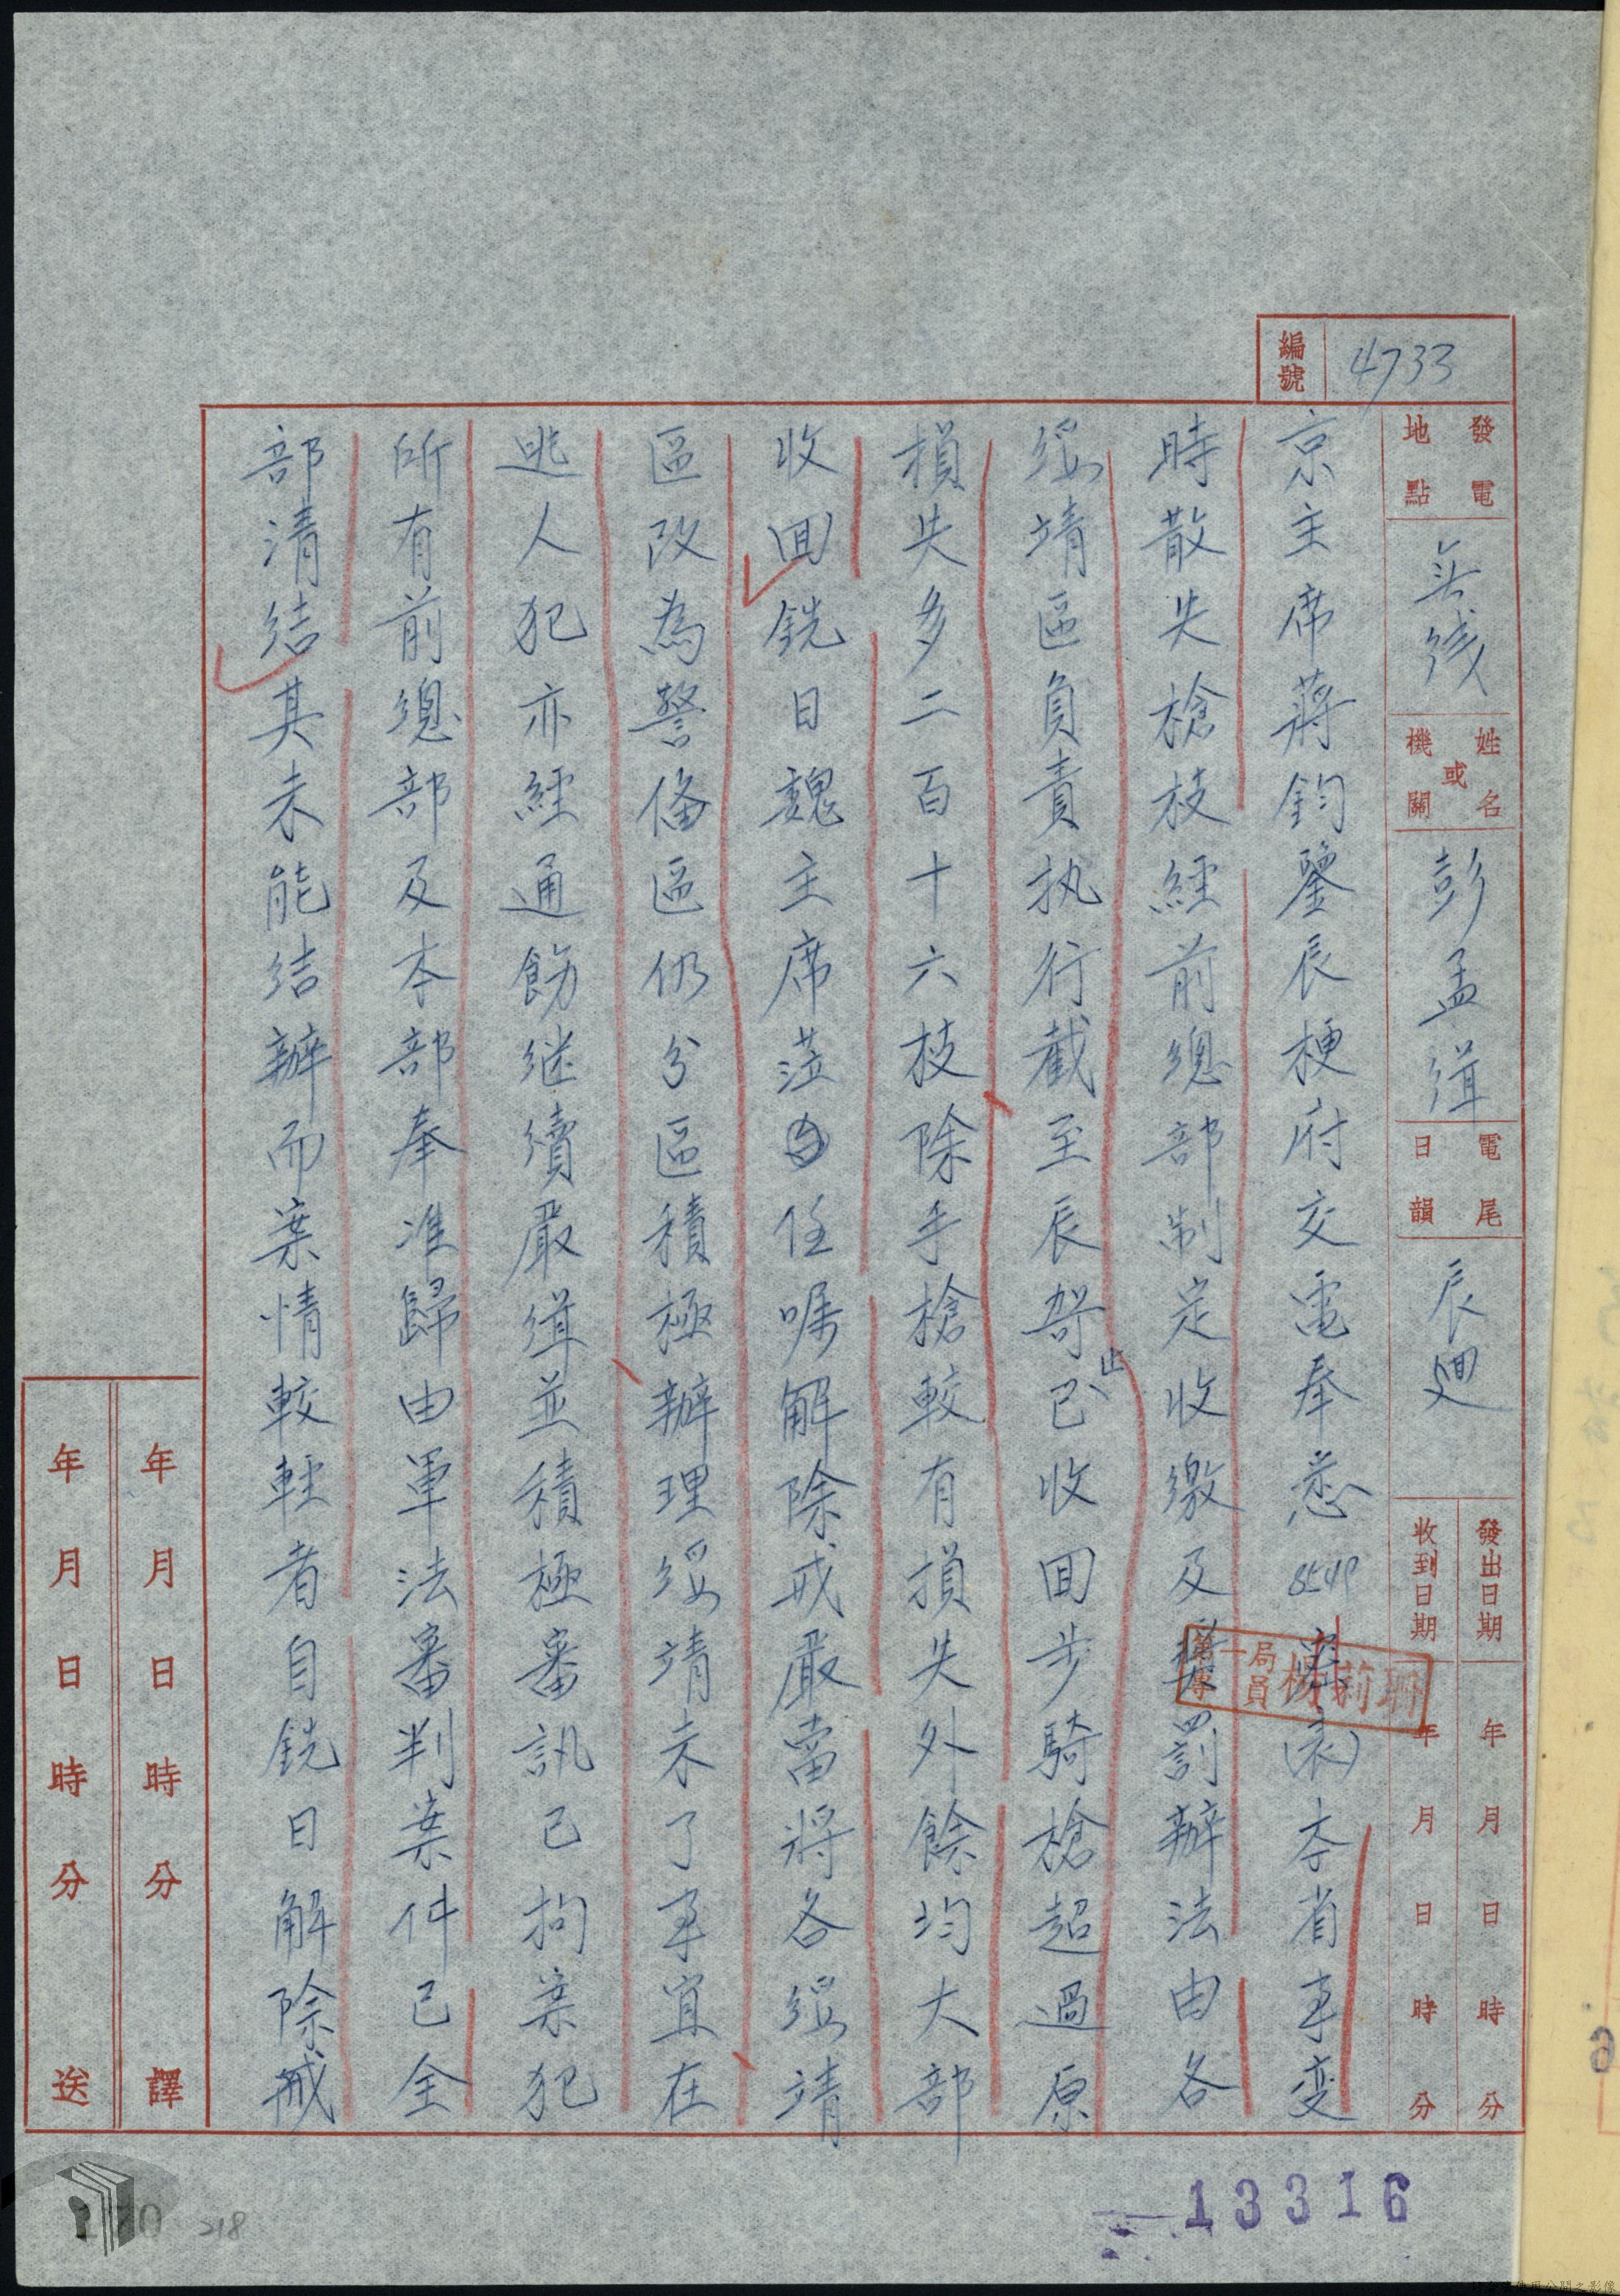 編號 4733
發電地點 無線
姓名或機關 彭孟緝
電尾日韻 辰迴
發出日期 年月日時分
收到日期 年月日時分
京主席蔣鈞鑒辰梗府交電奉悉 密(表)本省事變
時散失槍枝經前總部制定收繳及獎罰辦法由各
綏靖區負責执行截至辰哿止已收回步騎槍超過原
損失多二百十六枝除手槍較有損失外餘均大部
收回銑日魏主席蒞任囑解除戒嚴當將各綏靖
區改為警備區仍分區積極辦理綏靖未了事宜在
逃人犯亦經通飭继續嚴緝並積極審訊已拘案犯
所有前總部及本部奉准歸由軍法審判案件已全
部清结其未能结辦而案情較輕者自銑日解除戒
第一局
專員 楊莉珊
年月日時分譯
年月日時分送
13316
218
6